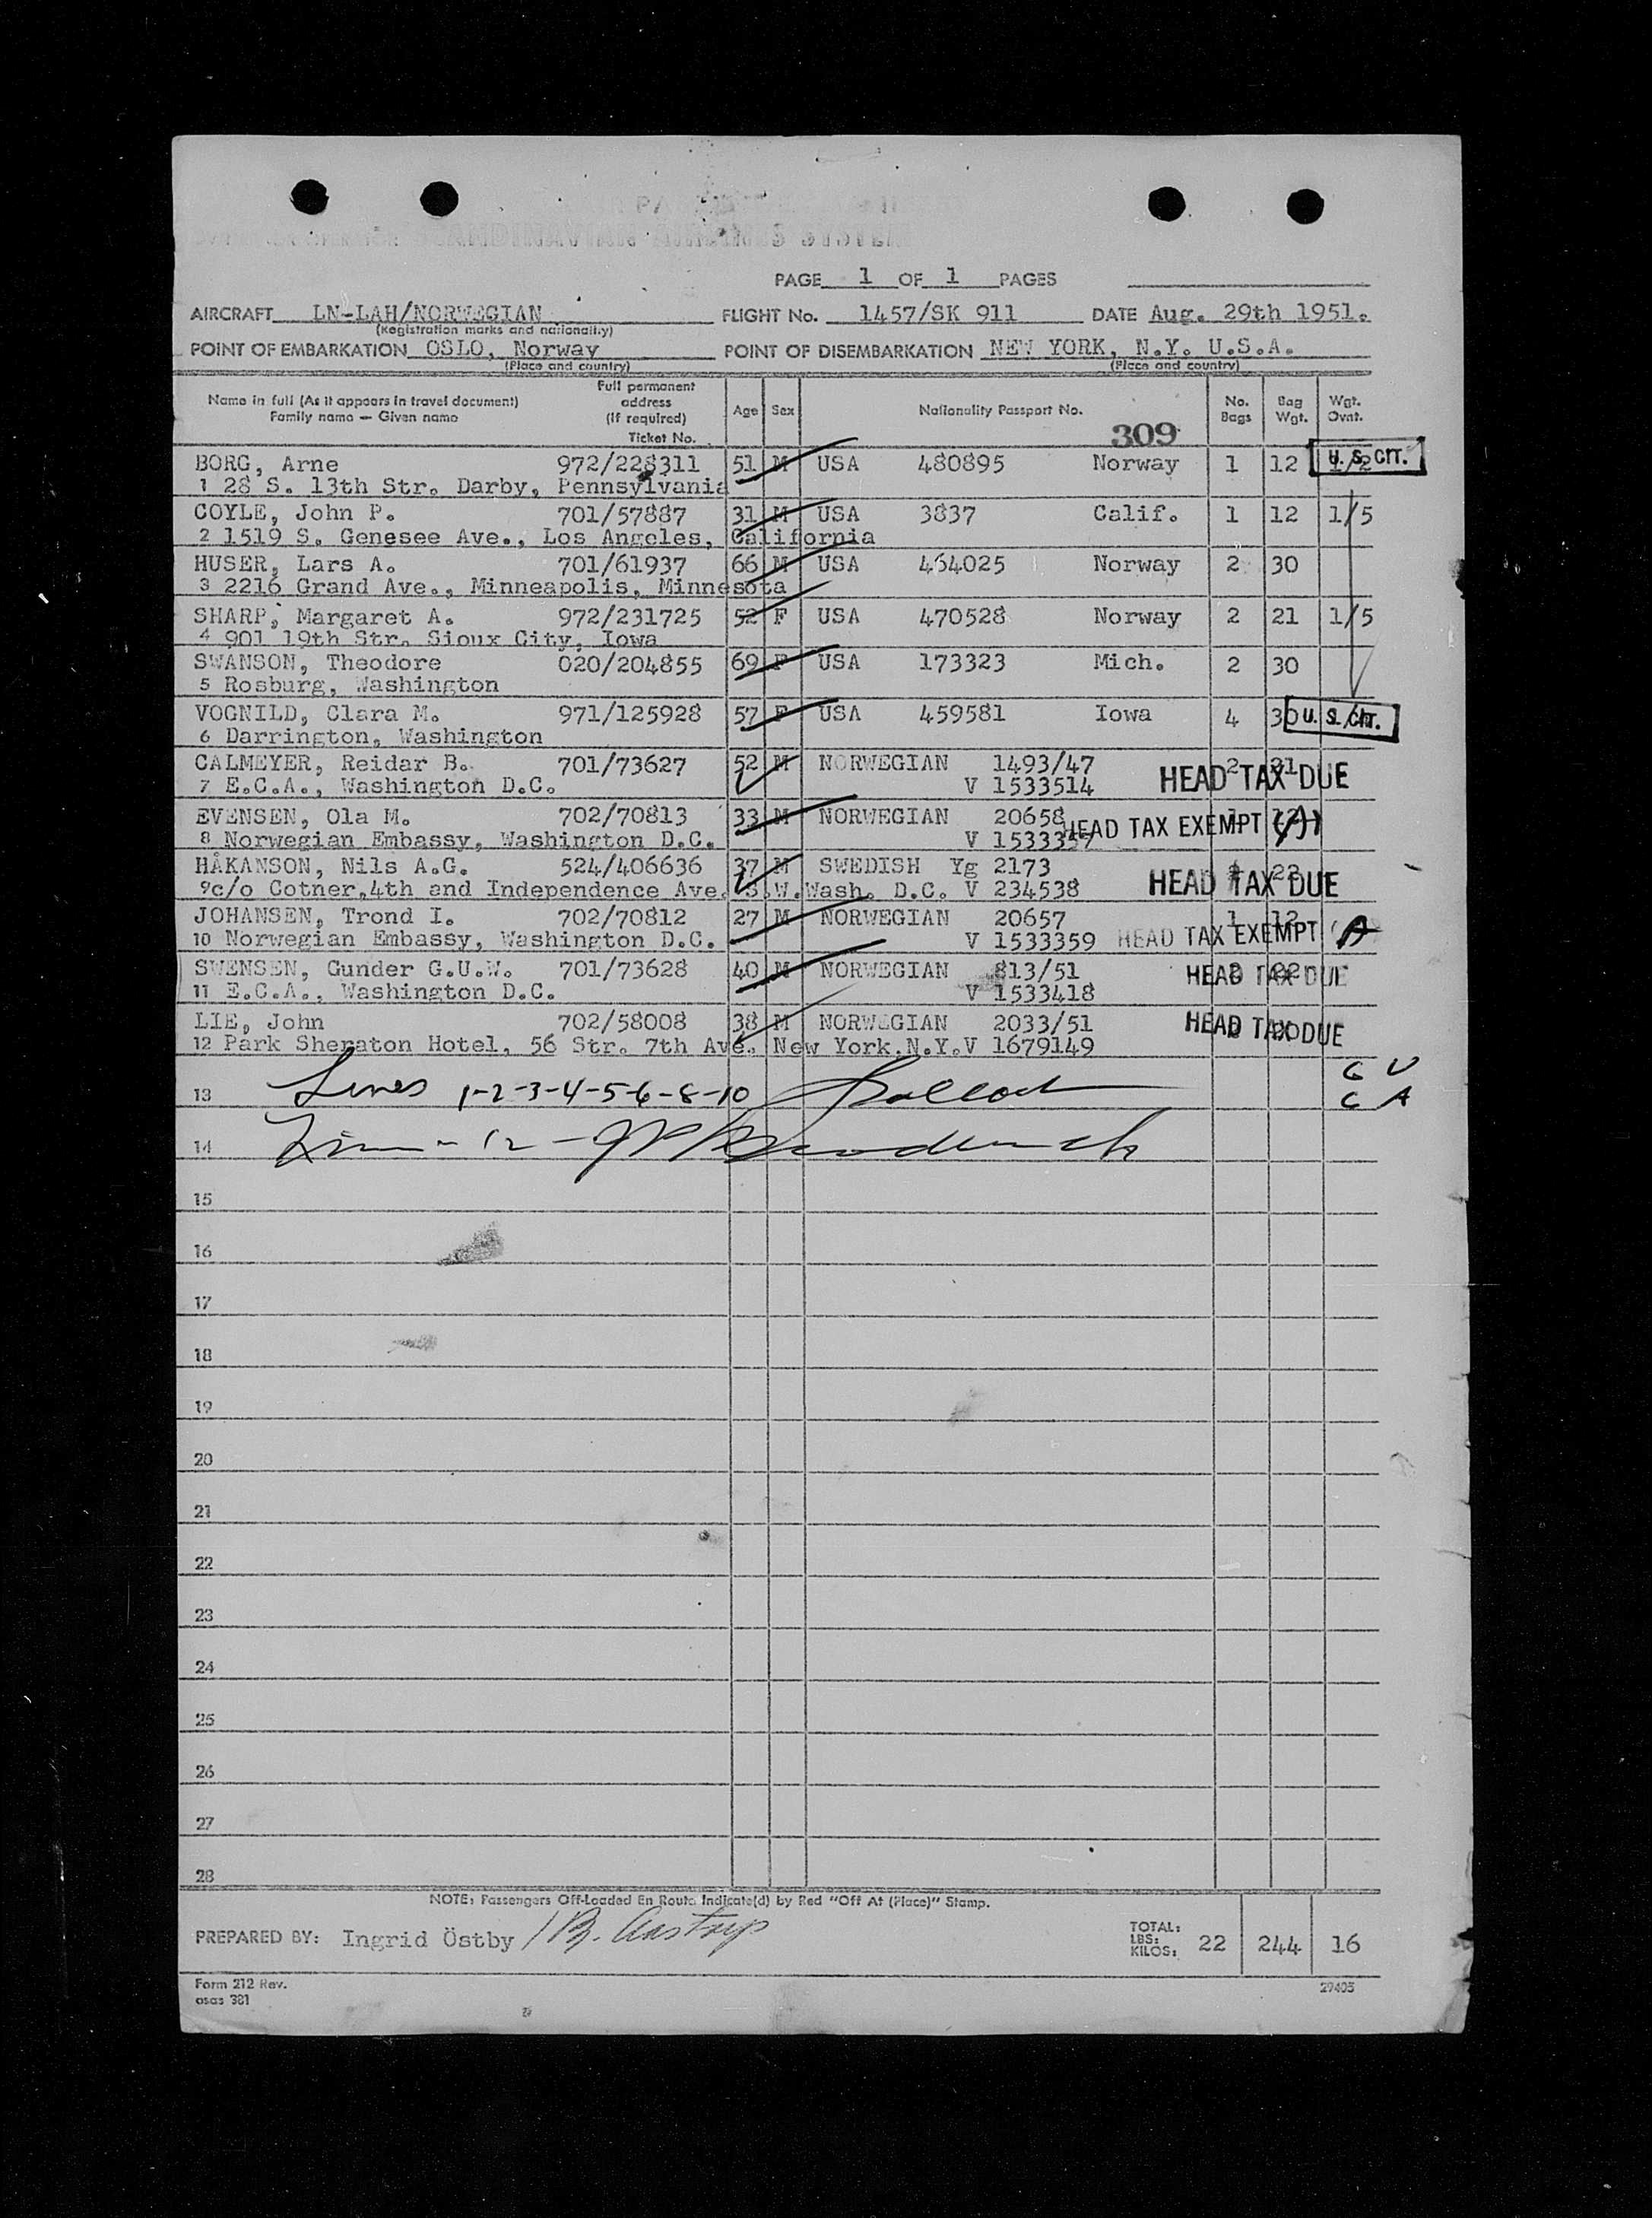 PAGE 1 OF 1 PAGES
AIRCRAFT LN-LAH/NORWEGIAN FLIGHT No. 1457/SK 911 DATE Aug. 29th 1951.
(Registration marks and nationality)
POINT OF EMBARKATION OSLO, Norway POINT OF DISEMBARKATION NEW YORK, N.Y. U.S.A.
(Place and country) (Place and country)
Name in full (As it appears in travel document) Family name — Given name Full permanent address (If required) Ticket No. Age Sex Nationality Passport No. No. Bags Bag Wgt. Wgt. Ovnt.
309
BORG, Arne 972/228311 51 M USA 480895 Norway 1 12 1/2 U. S. CIT.
1 28 S. 13th Str. Darby, Pennsylvania
COYLE, John P. 701/57887 31 M USA 3837 Calif. 1 12 1/5
2 1519 S. Genesee Ave., Los Angeles, California
HUSER, Lars A. 701/61937 66 M USA 464025 Norway 2 30
3 2216 Grand Ave., Minneapolis, Minnesota
SHARP, Margaret A. 972/231725 52 F USA 470528 Norway 2 21 1/5
4 901 19th Str. Sioux City, Iowa
SWANSON, Theodore 020/204855 69 F USA 173323 Mich. 2 30
5 Rosburg, Washington
VOGNILD, Clara M. 971/125928 57 F USA 459581 Iowa 4 30 U. S. CIT.
6 Darrington, Washington
CALMEYER, Reidar B. 701/73627 52 M NORWEGIAN 1493/47 2 31 HEAD TAX DUE
7 E.C.A., Washington D.C. V 1533514
EVENSEN, Ola M. 702/70813 33 M NORWEGIAN 20658 HEAD TAX EXEMPT (A)
8 Norwegian Embassy, Washington D.C. V 1533357
HÅKANSON, Nils A.G. 524/406636 37 M SWEDISH Yg 2173 22 HEAD TAX DUE
9c/o Cotner,4th and Independence Ave. S.W.Wash. D.C. V 234538
JOHANSEN, Trond I. 702/70812 27 M NORWEGIAN 20657 1 12
10 Norwegian Embassy, Washington D.C. V 1533359 HEAD TAX EXEMPT A
SWENSEN, Gunder G.U.W. 701/73628 40 M NORWEGIAN 813/51 2 22 HEAD TAX DUE
11 E.C.A., Washington D.C. V 1533418
LIE, John 702/58008 38 M NORWEGIAN 2033/51 20 HEAD TAX DUE
12 Park Sheraton Hotel, 56 Str. 7th Ave. New York.N.Y.V 1679149
13 Lines 1-2-3-4-5-6-8-10 6 U
6 A
14
15
16
17
18
19
20
21
22
23
24
25
26
27
28
NOTE: Passengers Off-Loaded En Route Indicate(d) by Red "Off At (Place)" Stamp.
PREPARED BY: Ingrid Östby / B. Aastrup TOTAL: LBS: KILOS: 22 244 16
Form 212 Rev.
osas 381 29405